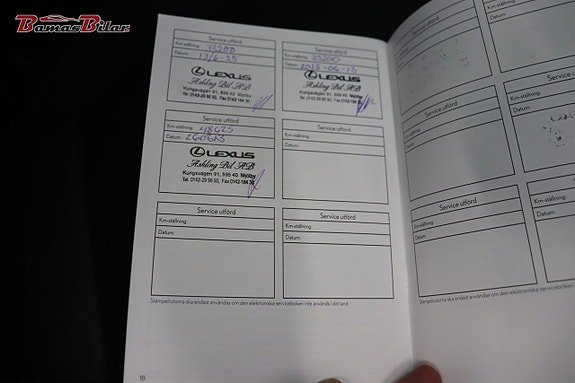 BamasBilar
Service utförd
Km-ställning: 33200
Datum: 13/6-25
LEXUS
Askling Bil AB
Kungsvägen 91, 595 40 Mjölby
Tel. 0142-29 96 90, Fax 0142-184 30
Service utförd
Km-ställning: 33200
Datum: 2025-06-13
LEXUS
Askling Bil AB
Kungsvägen 91, 595 40 Mjölby
Service utförd
Km-ställning: 48625
Datum:
LEXUS
Askling Bil AB
Kungsvägen 91, 595 40 Mjölby
Service utförd
Km-ställning:
Datum:
Service utförd
Km-ställning:
Datum:
Service utförd
Km-ställning:
Datum:
Stämpelrutorna ska endast användas om den elektroniska serviceboken inte används i ditt land.
16
Km-ställning:
Datum:
Service utförd
Km-ställning:
Datum:
Service utförd
Km-ställning:
Datum:
Stämpelrutorna ska endast användas om den elektroniska serviceboken